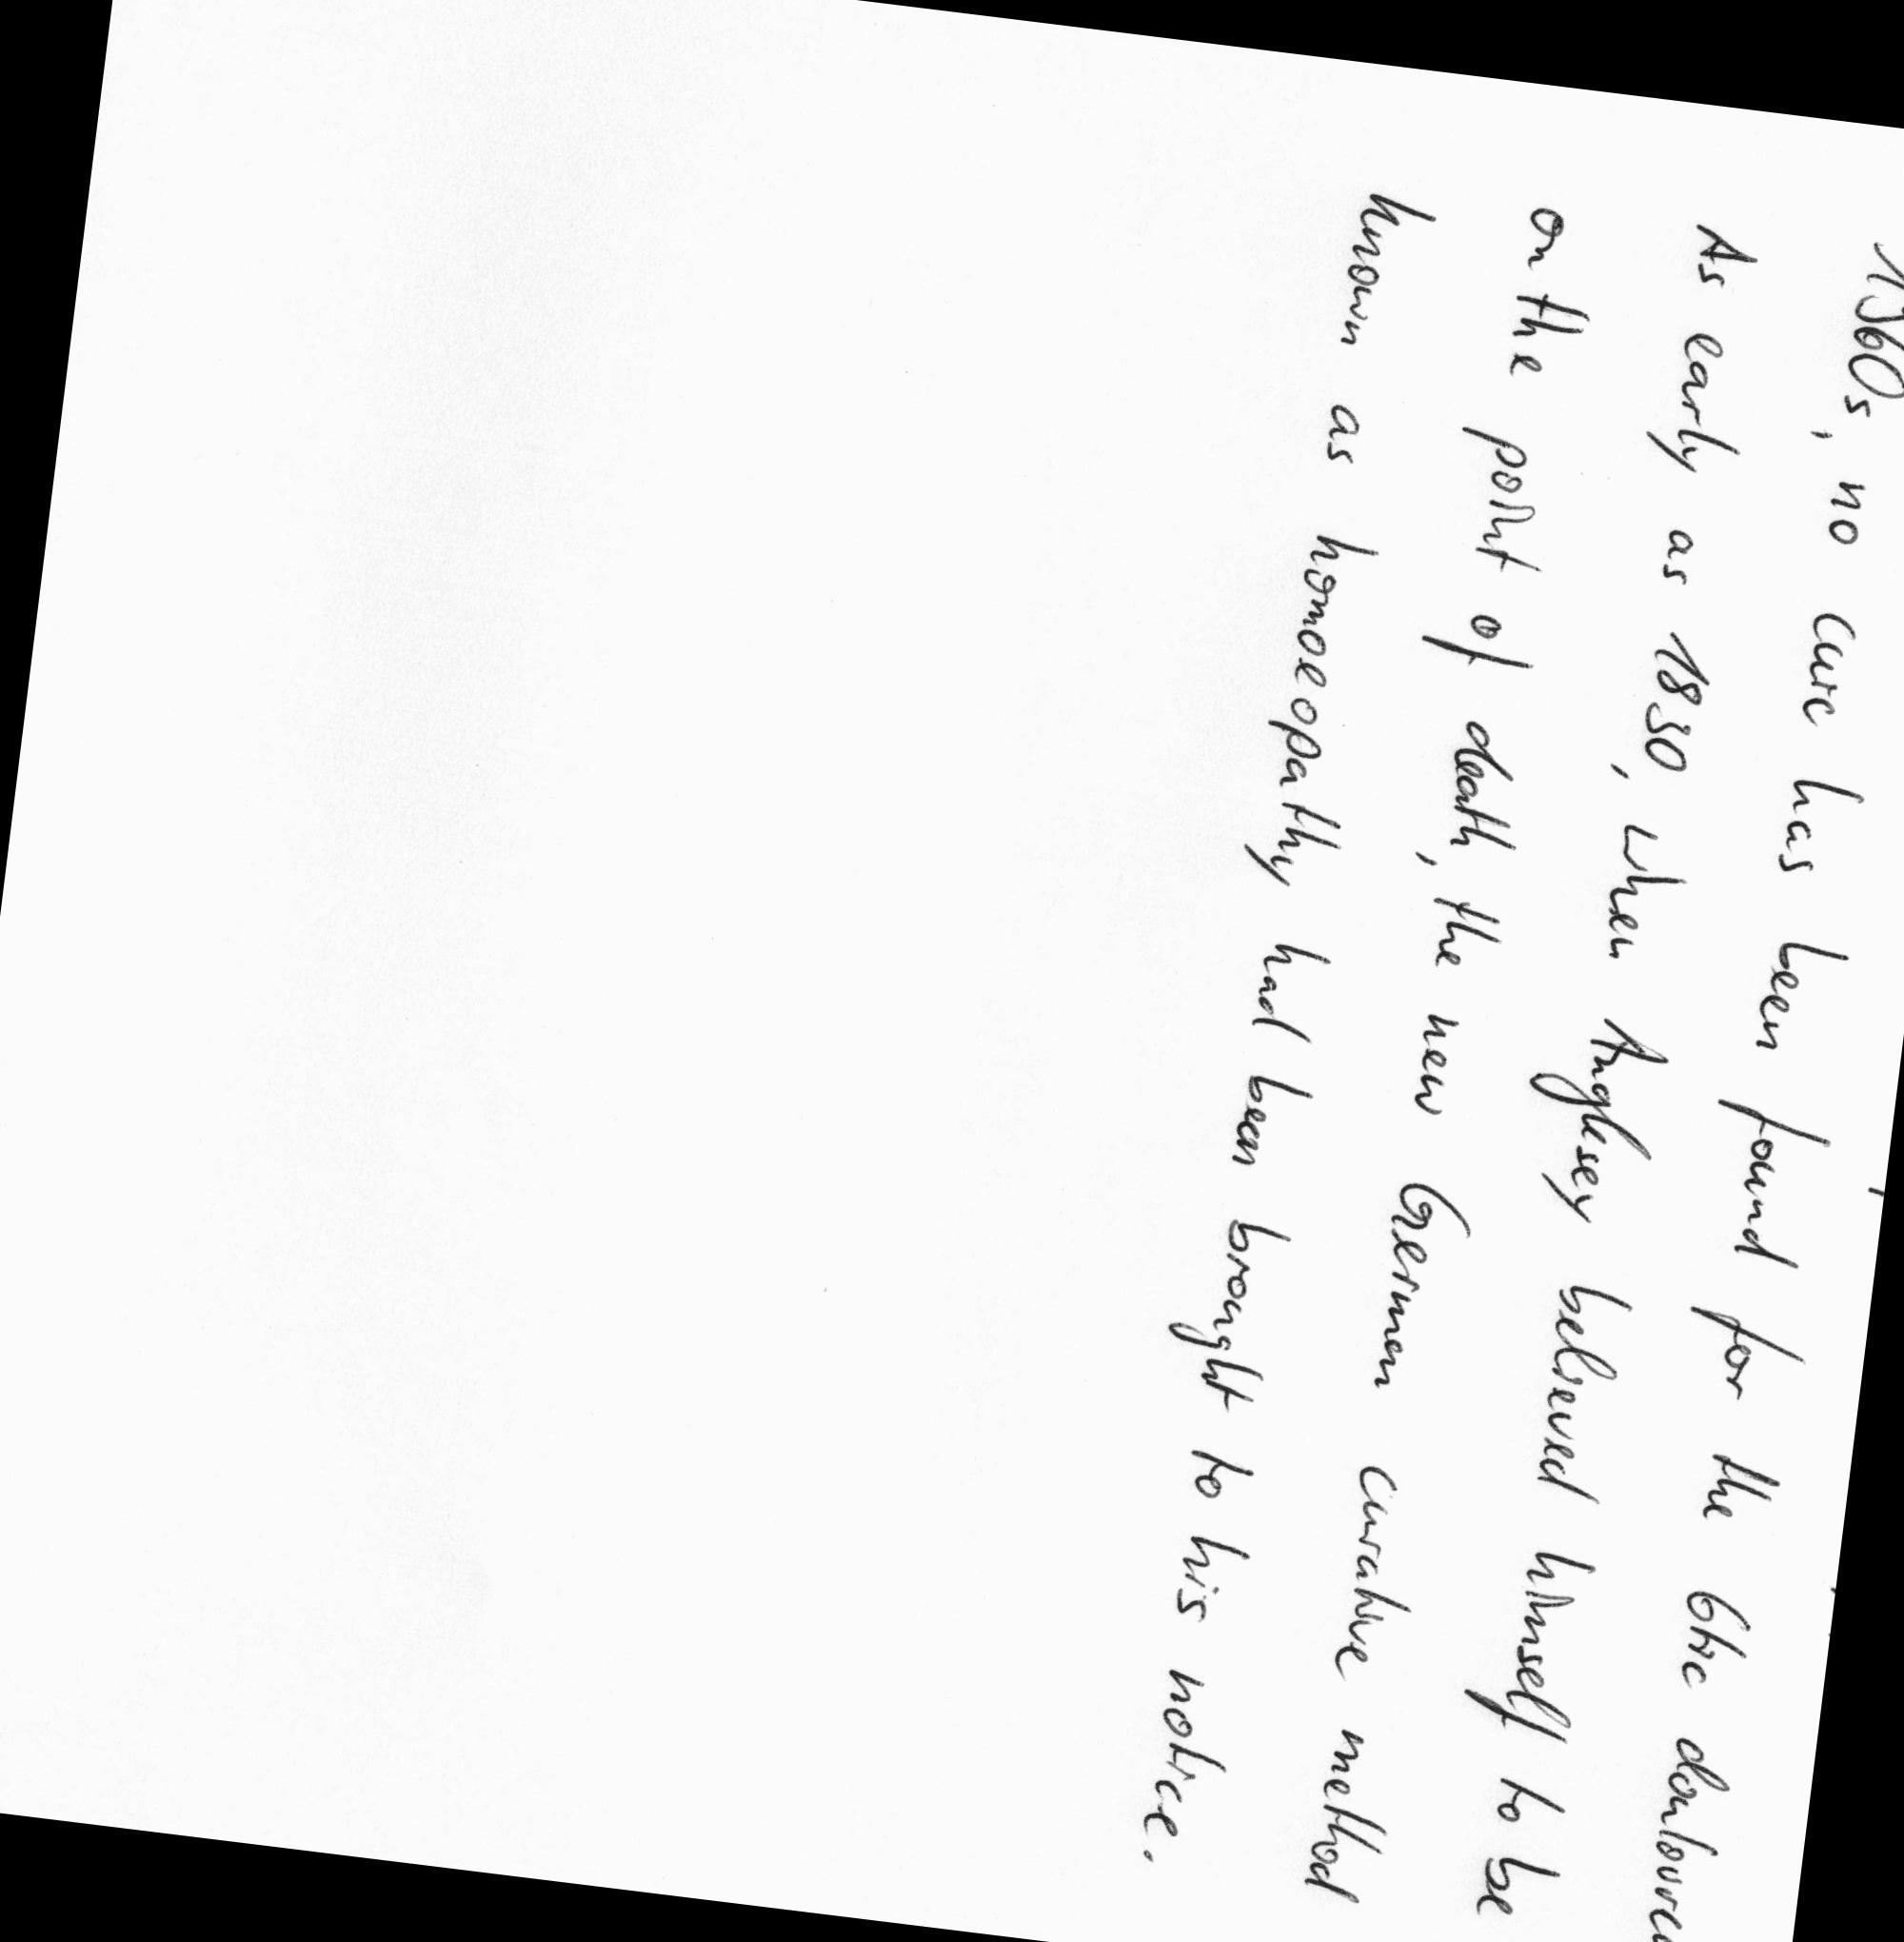 1960s, no cure has been found for the tic
As early as 1830, when Anglesey believed himself to be
on the point of death, the new German curative method
known as homoeopathy had been brought to his notice.